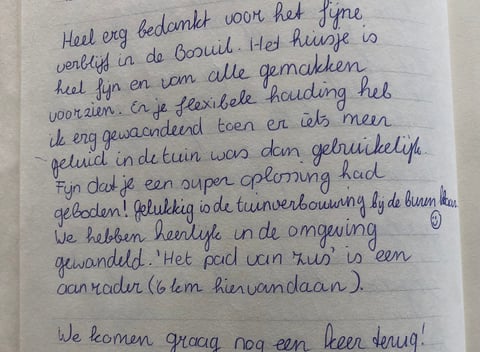 Heel erg bedankt voor het fijne
verblijf in de Bosuil. Het huisje is
heel fijn en van alle gemakken
voorzien. En je flexibele houding heb
ik erg gewaardeerd toen er iets meer
geluid in de tuin was dan gebruikelijk.
Fijn dat je een super oplossing had
geboden! Gelukkig is de tuinverbouwing bij de buren klaar
☺
We hebben heerlijk in de omgeving
gewandeld. 'Het pad van zus' is een
aanrader (6 km hiervandaan).
We komen graag nog een keer terug!